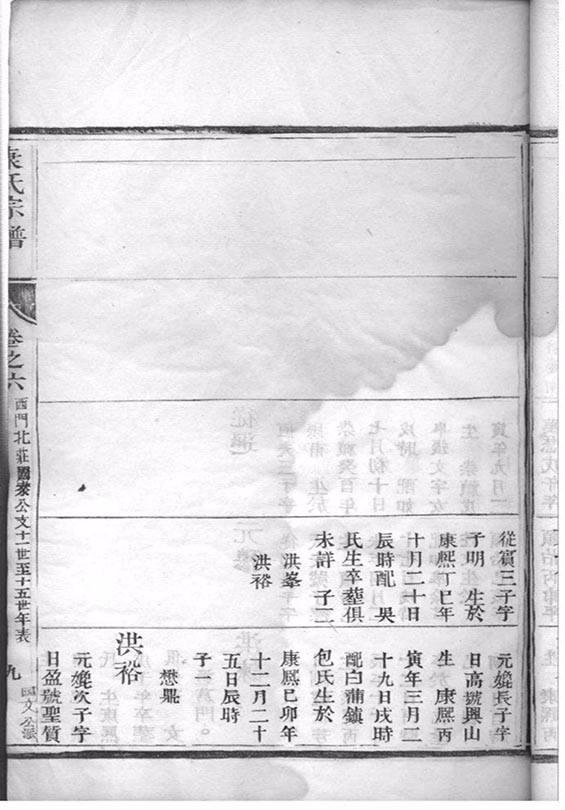 從賔三子字
子明 生於
康熙丁巳年
十月二十日
辰時配 吳
氏生卒塟俱
未詳 子二
洪峯
洪裕
元長子字
日高號興山
生 康熙丙
寅年三月二
十九日戌時
配白蒲鎮
包氏生於
康熙己卯年
十二月二十
五日辰時
子一
懋鼎
洪裕
元次子字
日盈號聖質
袁氏宗譜
卷之六
西門北莊國泰公支十一世至十五世年表
九